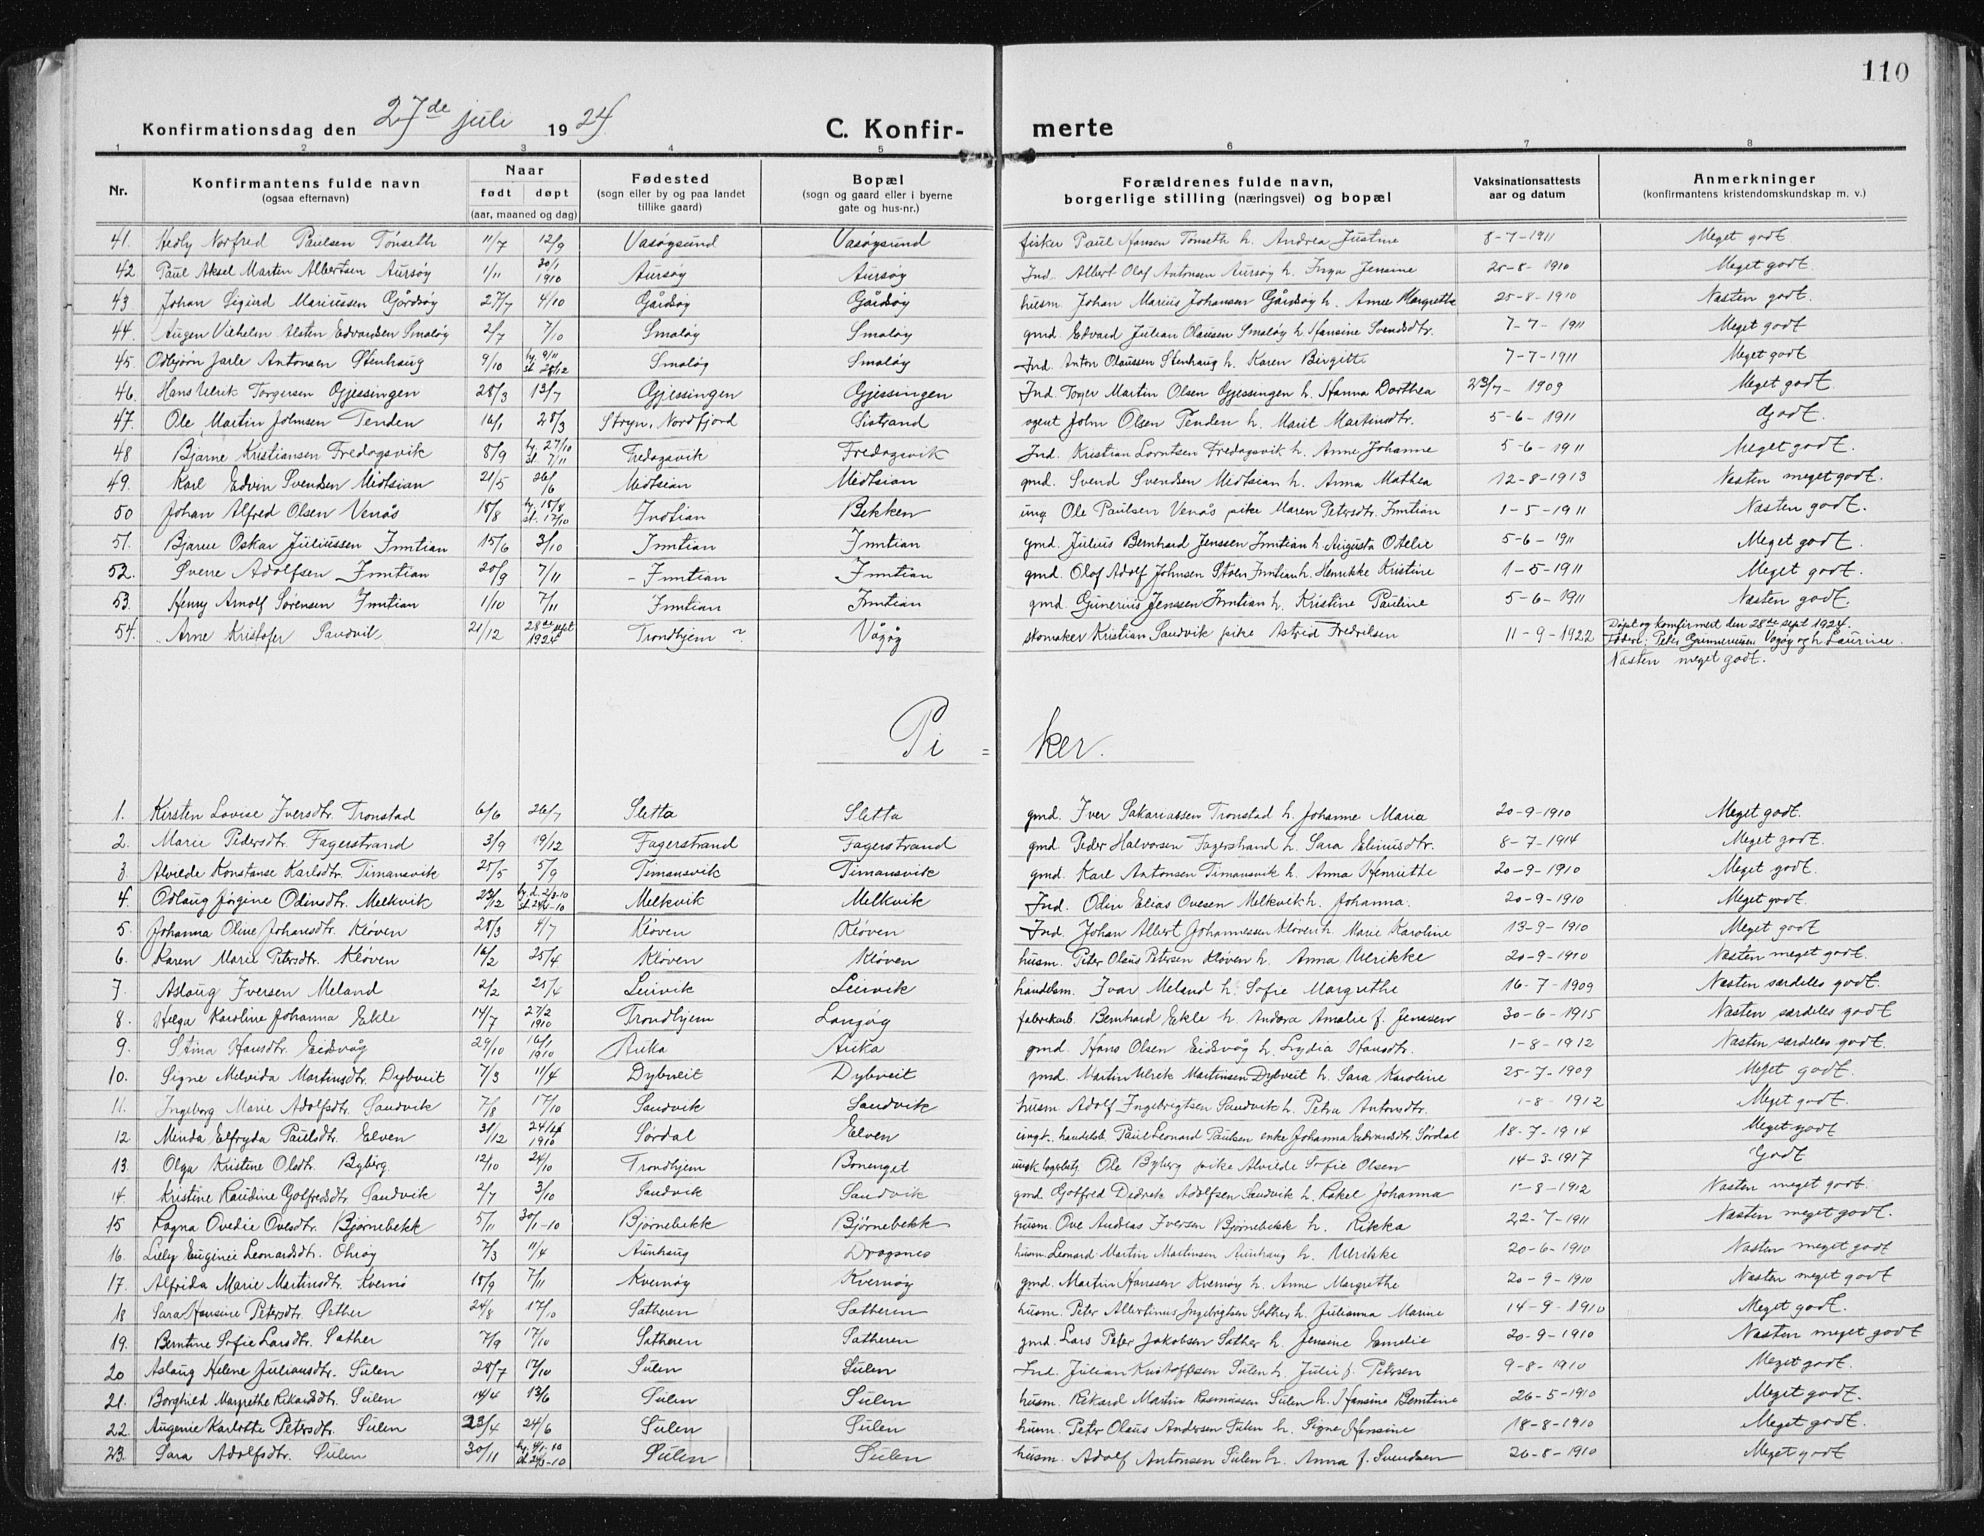 110
Konfirmationsdag den 27de juli 1924 C. Konfir- merte
1 2 3 4 5 6 7 8
Nr. Konfirmantens fulde navn (ogsaa efternavn) Naar født døpt (aar, maaned og dag) Fødested (sogn eller by og paa landet tillike gaard) Bopæl (sogn og gaard eller i byerne gate og hus-nr.) Forældrenes fulde navn, borgerlige stilling (næringsvei) og bopæl Vaksinationsattests aar og datum Anmerkninger (konfirmantens kristendomskundskap m. v.)
41. Hedly Norfred Paulsen Tønseth 11/7 12/9 Vasøysund Vasøysund fisker Paul Hansen Tønseth h. Andrea Justine 8-7-1911 Meget godt
42. Paul Aksel Marten Albertsen Aursøy 1/11 30/1 1910 Aursøy Aursøy Ind. Albert Olaf Antonsen Aursøy h. Inga Jensine 20-8-1910 Meget godt.
43 Johan Sigurd Mariussen Gårdsøy 27/7 4/10 Gårdsøy Gårdsøy husm. Johan Marius Johansen Gårdsøy h. Anne Margrethe 25-8-1910 Næsten godt.
44. Augen Vilhelm Alsten Edvardsen Smaløy 2/7 7/10 Smaløy Smaløy gmd. Edvard Julian Olaussen Smaløy h. Hansine Svendsdtr. 7-7-1911 Meget godt
45 Odbjørn Jarle Antonsen Stenhaug 9/10 hj. 9/11 st. 28/12 Smaløy Smaløy Ind. Anton Olaussen Stenhaug h. Karen Birgitte 7-7-1911 Meget godt
46. Hans Ulrik Torgersen Gjessingen 28/3 13/7 Gjessingen Gjessingen Ind. Torger Martin Olsen Gjessingen h. Hanna Dorthea 23/7-1909 Meget godt
47. Ole Martin Johnsen Tenden 16/1 28/3 Stryn, Nordfjord Sistrand agent John Olsen Tenden h. Marit Martinsdtr. 5-6-1911 Godt.
48 Bjarne Kristiansen Fredagsvik 8/9 hj. 27/10 st. 7/11 Fredagsvik Fredagsvik Ind. Kristian Lorntsen Fredagsvik h. Anne Johanne 5-6-1911 Meget godt.
49. Karl Edvin Svendsen Midtsian 21/5 26/6 Midtsian Midtsian gmd. Svend Svendsen Midtsian h. Anna Mathea 12-8-1913 Næsten meget godt.
50 Johan Alfred Olsen Venås 18/8 hj. 18/8 st. 17/10 Indtian Bekken ung. Ole Paulsen Venås pike Maren Petersdtr. Inntian 1-5-1911 Næsten godt.
51. Bjarne Oskar Juliussen Inntian 15/6 3/10 Inntian Inntian gmd. Julius Bernhard Jenssen Inntian h. Augusta Otelie 5-6-1911 Meget godt.
52. Sverre Adolfsen Inntian 20/9 7/11 Inntian Inntian gmd. Olaf Adolf Johnsen Støen Inntian h. Henrikke Kristine 1-5-1911 Meget godt.
53. Henry Arnolf Sørensen Inntian 1/10 7/11 Inntian Inntian gmd. Gunerius Jenssen Inntian h. Kristine Pauline 5-6-1911 Næsten godt.
54. Arne Kristofer Sandvik 21/12 28de sept 1924 Trondhjem ? Vågøy skomaker Kristian Sandvik pike Astrid Fredriksen 11-9-1922 Døpt og konfirmert den 28de sept 1924.
Peter Gunneriussen Vågøy og h. Laurine.
Næsten meget godt.
Pi = ker.
1. Kirsten Lovise Iversdtr. Tronstad 6/6 26/7 Sletta Sletta gmd. Iver Sakariassen Tronstad h. Johanne Maria 20-9-1910 Meget godt.
2. Marie Pedersdtr. Fagerstrand 3/9 19/12 Fagerstrand Fagerstrand gmd. Peder Halvorsen Fagerstrand h. Sara Eliusdtr. 8-7-1914 Meget godt.
3. Alvilde Konstanse Karlsdtr. Timansvik 25/5 5/9 Timansvik Timansvik gmd. Karl Antonsen Timansvik h. Anna Henriette 20-9-1910 Meget godt
4. Odlaug Jørgine Odinsdtr. Melkvik 23/12 Melkvik Melkvik Ind. Odin Elias Ovesen Melkvik h. Johanna. 20-9-1910 Meget godt.
5 Johanna Oline Johansdtr. Kløven 28/3 4/7 Kløven Kløven Ind. Johan Albert Johannessen Kløven h. Marie Karoline 13-9-1910 Meget godt
6. Karen Marie Petersdtr. Kløven 16/2 25/4 Kløven Kløven husm. Peter Olaus Petersen Kløven h. Anna Ulrikke 20-9-1910 Næsten meget godt.
7 Aslaug Iversen Meland 2/2 25/4 Leirvik Leirvik handelsm. Ivar Meland h. Sofie Margrethe 16-7-1909 Næsten særdeles godt.
8. Helga Karoline Johanna Ekle 14/7 27/2 1910 Trondhjem Langøy fabrikarb. Bernhard Ekle h. Andora Amalie f. Jenssen 30-6-1915 Næsten særdeles godt
9. Stina Hansdtr. Eidsvåg 29/10 16/1 1910 Auka Auka gmd. Hans Olsen Eidsvåg h. Lydia Hansdtr. 1-8-1912 Næsten særdeles godt.
10. Signe Melvida Martinsdtr. Dybveit 7/3 11/4 Dybveit Dybveit gmd. Martin Ulrik Martinsen Dybveit h. Sara Karoline 25-7-1909 Meget godt.
11. Ingeborg Marie Adolfsdtr. Sandvik 7/8 17/10 Sandvik Sandvik husm. Adolf Ingebrigtsen Sandvik h. Petra Antonsdtr. 1-8-1912 Meget godt.
12 Minda Elfryda Paulsdtr. Elven 31/12 24/4 1910 Sørdal Elven handelsb. Paul Leonard Paulsen enke Johanna Edvardsdtr. Sørdal 18-7-1914 Meget godt
13. Olga Kristine Olsdtr. Byberg. 12/10 24/10 Trondhjem Bonenget Ole Byberg pike Alvilde Sofie Olsen 14-3-1917 Godt
14. Kristine Raudine Gotfredsdtr. Sandvik 2/7 3/10 Sandvik Sandvik gmd. Gotfred Didrik Adolfsen Sandvik h. Rakel Johanna 1-8-1912 Næsten meget godt.
15 Ragna Ovedie Ovesdtr. Bjørnebekk 5/11 30/1-10 Bjørnebekk Bjørnebekk husm. Ove Andreas Iversen Bjørnebekk h. Rikka 22-7-1911 Næsten meget godt.
16. Lilly Euginie Leonardsdtr. Ohrøy 7/3 11/4 Aunhaug Dragsnes husm. Leonard Martin Martinsen Aunhaug h. Ulrikke 20-6-1910 Næsten meget godt
17. Alfrida Marie Martinsdtr. Kvernø 18/9 7/11 Kvernøy Kvernøy gmd. Martin Hanssen Kvernøy h. Anne Margrethe 20-9-1910 Næsten meget godt
18 Sara Hansine Petersdtr. Sæther 24/8 17/10 Sætheren Sætheren husm. Peter Albertinus Ingebrigtsen Sæther h. Julianna Marine 14-9-1910 Meget godt.
19. Berntine Sofie Larsdtr. Sæther 7/9 17/10 Sætheren Sætheren gmd. Lars Peter Jakobsen Sæther h. Jensine Emelie 20-9-1910 Næsten meget godt
20 Aslaug Helene Juliansdtr. Sulen 28/7 17/10 Sulen Sulen Ind. Julian Kustofsen Sulen h. Julie f. Petersen 9-8-1910 Meget godt.
21. Borghild Margrethe Rikardsdtr. Sulen 14/4 13/6 Sulen Sulen husm. Rikard Martin Rasmussen Sulen h. Hansine Berntine 26-5-1910 Meget godt.
22. Augenie Karlotte Petersdtr. Sulen 23/4 24/6 Sulen Sulen husm. Peter Olaus Andersen Sulen h. Signe Hansine 18-8-1910 Meget godt.
23. Sara Adolfsdtr. Sulen 30/11 Sulen Sulen husm. Adolf Antonsen Sulen h. Anna f. Svendsen 26-8-1910 Meget godt